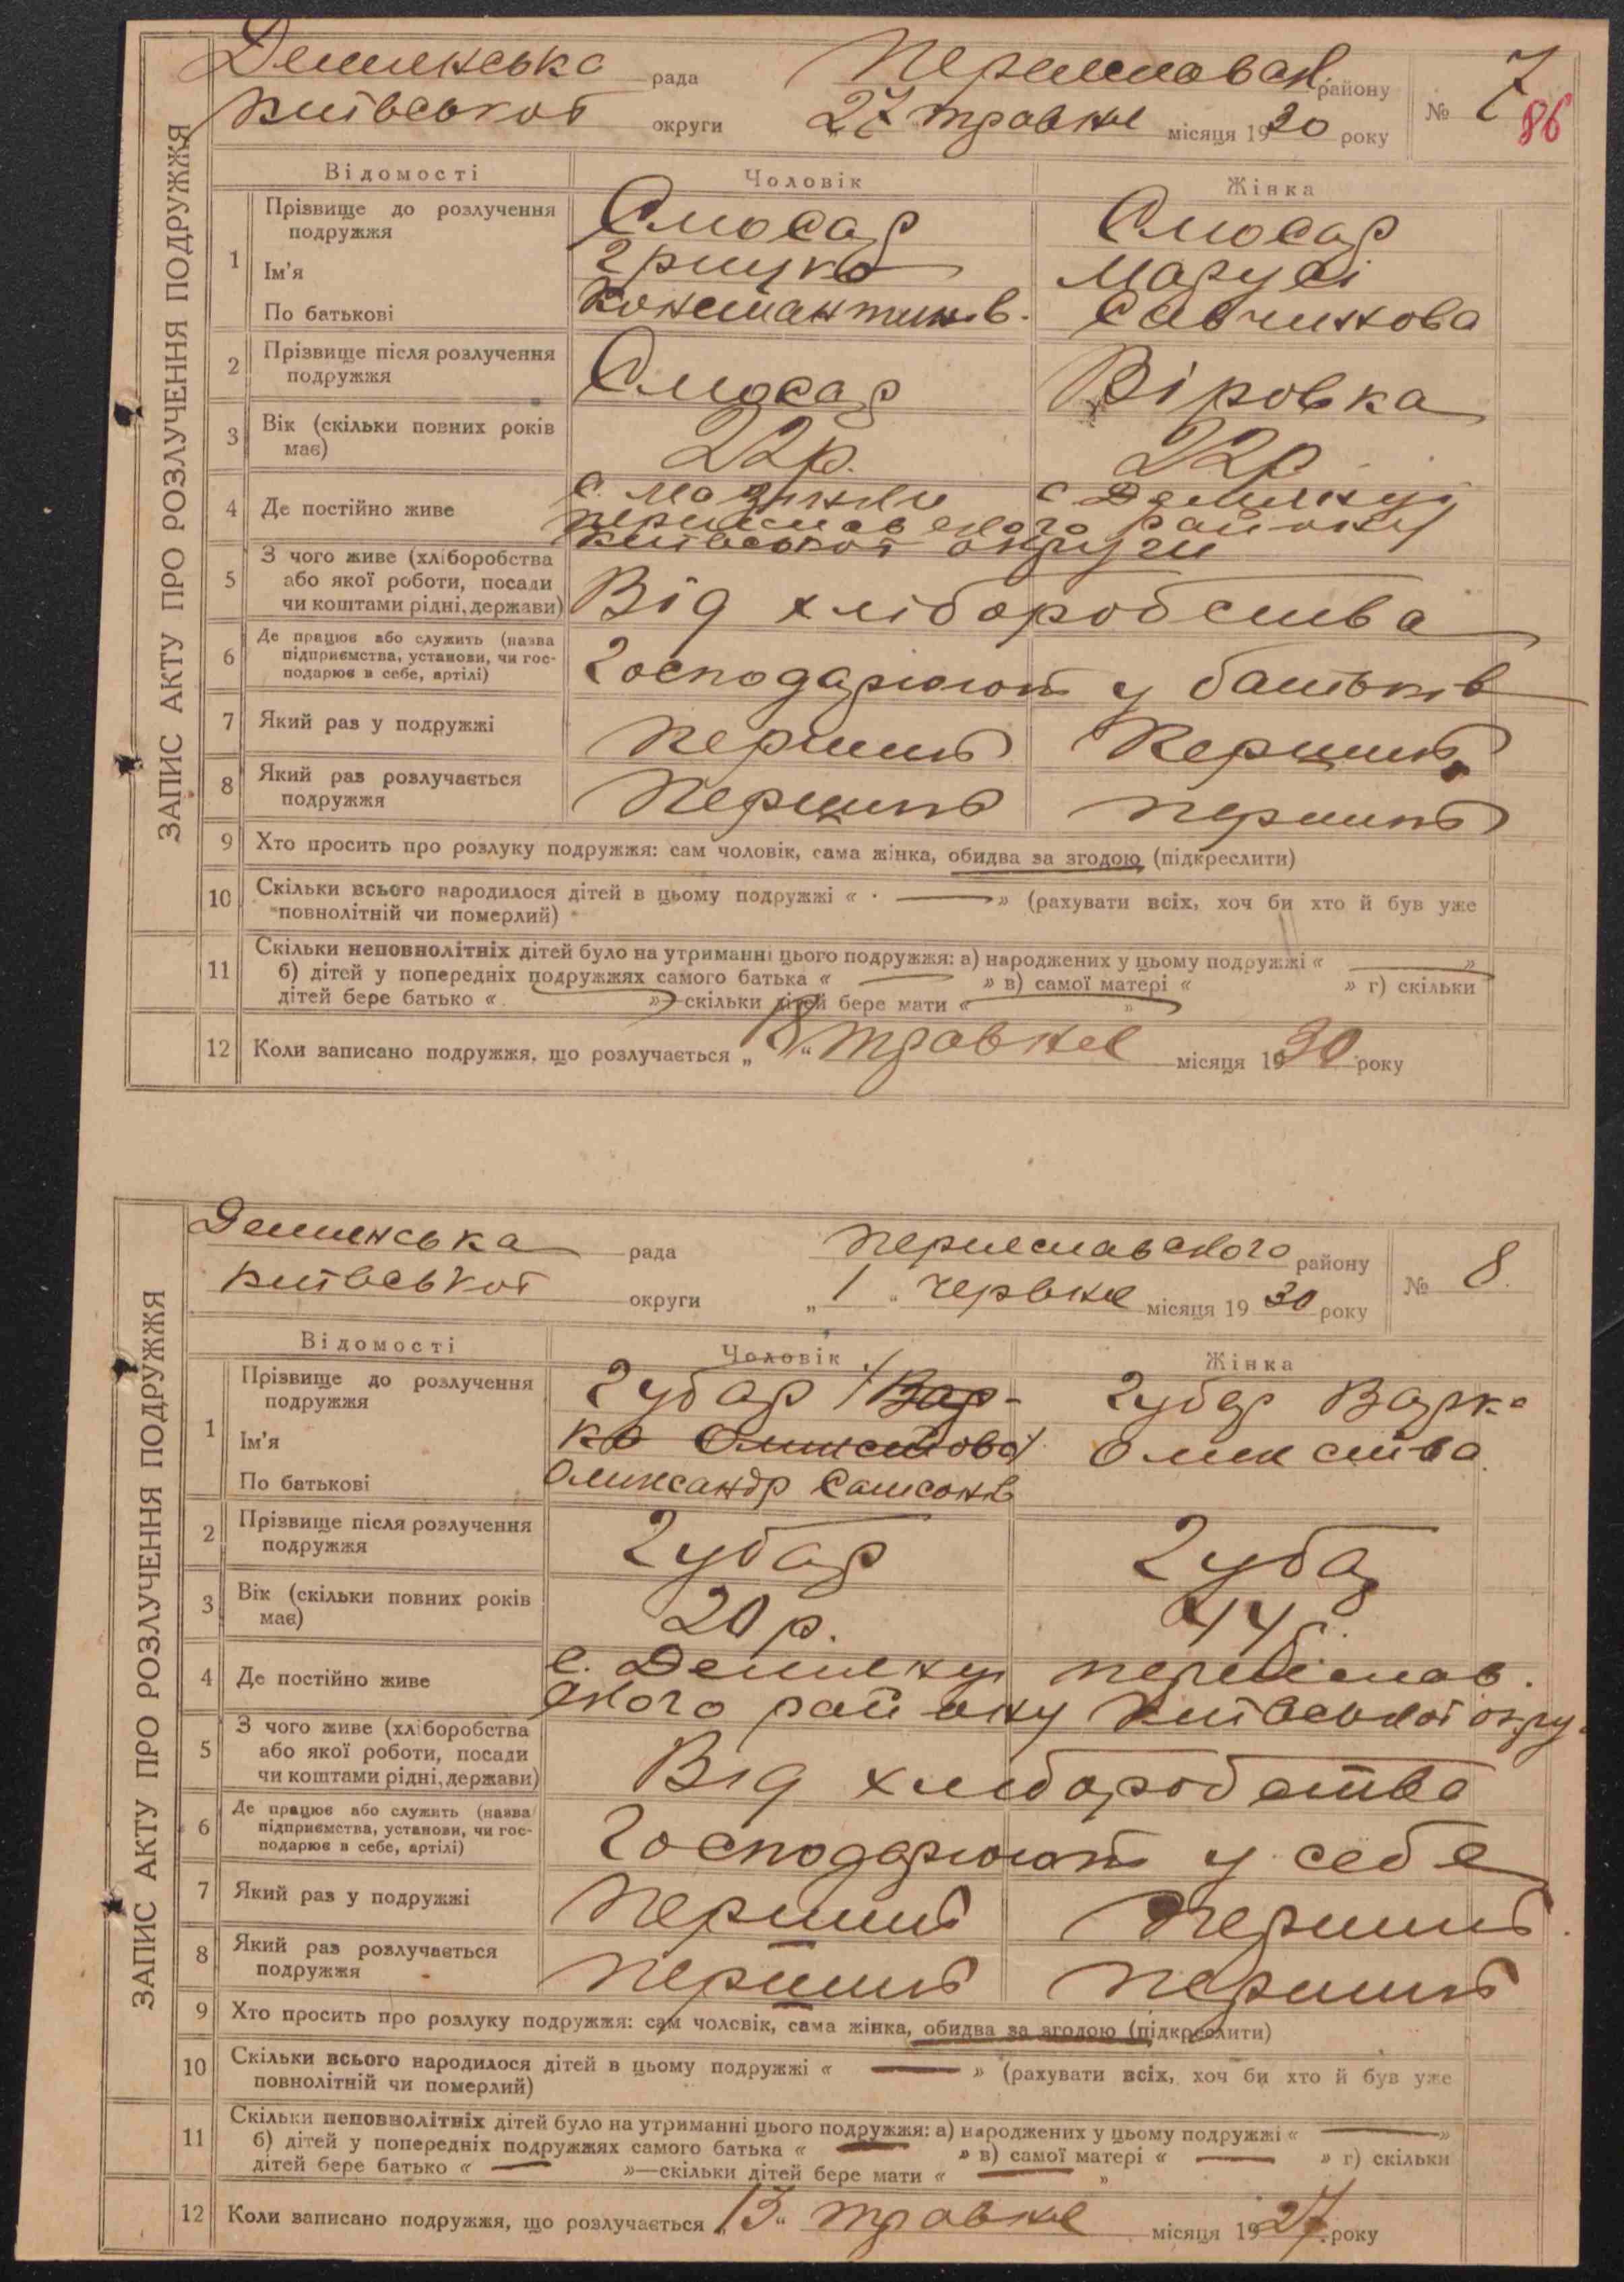 ЗАПИС АКТУ ПРО РОЗЛУЧЕННЯ ПОДРУЖЖЯ
Демянська рада Переяславськ. району № 7
86
Київської округи 27 травня місяця 1930 року
Відомості Чоловік Жінка
1 Прізвище до розлучення подружжя Слюсар Слюсар
Ім'я Грицько Марусі
По батькові Константинов. Савчинова
2 Прізвище після розлучення подружжя Слюсар Віровка
3 Вік (скільки повних років має) 22р. 22р.
4 Де постійно живе с. Мазінки с Демянці
переяславського району
Київської округи
5 З чого живе (хліборобства або якої роботи, посади чи коштами рідні, держави) Від хліборобства
6 Де працює або служить (назва підприємства, установи, чи господарює в себе, артілі) Господарюють у батьків
7 Який раз у подружжі перший Перший
8 Який раз розлучається подружжя Перший перший
9 Хто просить про розлуку подружжя: сам чоловік, сама жінка, обидва за згодою (підкреслити)
10 Скільки всього народилося дітей в цьому подружжі « — » (рахувати всіх, хоч би хто й був уже
повнолітній чи померлий)
11 Скільки неповнолітніх дітей було на утриманні цього подружжя: а) народжених у цьому подружжі « — »
б) дітей у попередніх подружжях самого батька « — » в) самої матері « » г) скільки
дітей бере батько « »—скільки дітей бере мати « — »
12 Коли записано подружжя, що розлучається „18“ травня місяця 1930 року
ЗАПИС АКТУ ПРО РОЗЛУЧЕННЯ ПОДРУЖЖЯ
Демянська рада переяславского району № 8.
Київської округи „1“ червня місяця 1930 року
Відомості Чоловік Жінка
1 Прізвище до розлучення подружжя Губар Вар- Губар Варка
Ім'я ка Олексіова Олексіва
По батькові Олександр Самсонів
2 Прізвище після розлучення подружжя Губар Губар
3 Вік (скільки повних років має) 20 р.
4 Де постійно живе с. Демянці переяслав.
ского району Київської округ
5 З чого живе (хліборобства або якої роботи, посади чи коштами рідні, держави) Від хліборобства
6 Де працює або служить (назва підприємства, установи, чи господарює в себе, артілі) Господарюють у себе
7 Який раз у подружжі перший перший
8 Який раз розлучається подружжя перший перший
9 Хто просить про розлуку подружжя: сам чоловік, сама жінка, обидва за згодою (підкреслити)
10 Скільки всього народилося дітей в цьому подружжі « — » (рахувати всіх, хоч би хто й був уже
повнолітній чи померлий)
11 Скільки неповнолітніх дітей було на утриманні цього подружжя: а) народжених у цьому подружжі « — »
б) дітей у попередніх подружжях самого батька « — » в) самої матері « — » г) скільки
дітей бере батько « — »—скільки дітей бере мати « — »
12 Коли записано подружжя, що розлучається „13“ травня місяця 1927 року